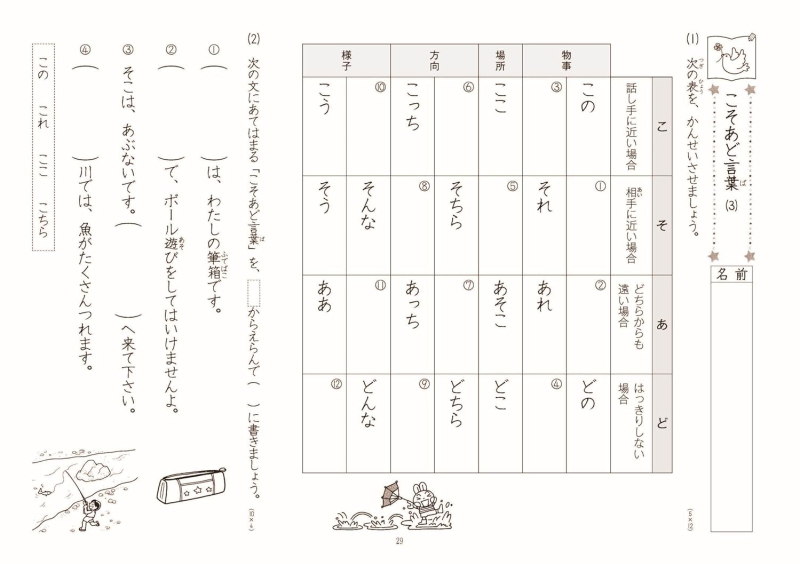 こそあど言葉 (3)
名前
(1) 次の表を、かんせいさせましょう。
(5×12)
こ
そ
あ
ど
話し手に近い場合
相手に近い場合
どちらからも遠い場合
はっきりしない場合
物事
この
①
②
どの
③
それ
あれ
④
場所
ここ
⑤
あそこ
どこ
方向
⑥
そちら
⑦
どちら
こっち
⑧
あっち
⑨
様子
⑩
そんな
⑪
どんな
こう
そう
ああ
⑫
(2) 次の文にあてはまる「こそあど言葉」を、 からえらんで( )に書きましょう。
(10×4)
① ( )は、わたしの筆箱です。
② ( )で、ボール遊びをしてはいけませんよ。
③ そこは、あぶないです。( )へ来て下さい。
④ ( )川では、魚がたくさんつれます。
この これ ここ こちら
29